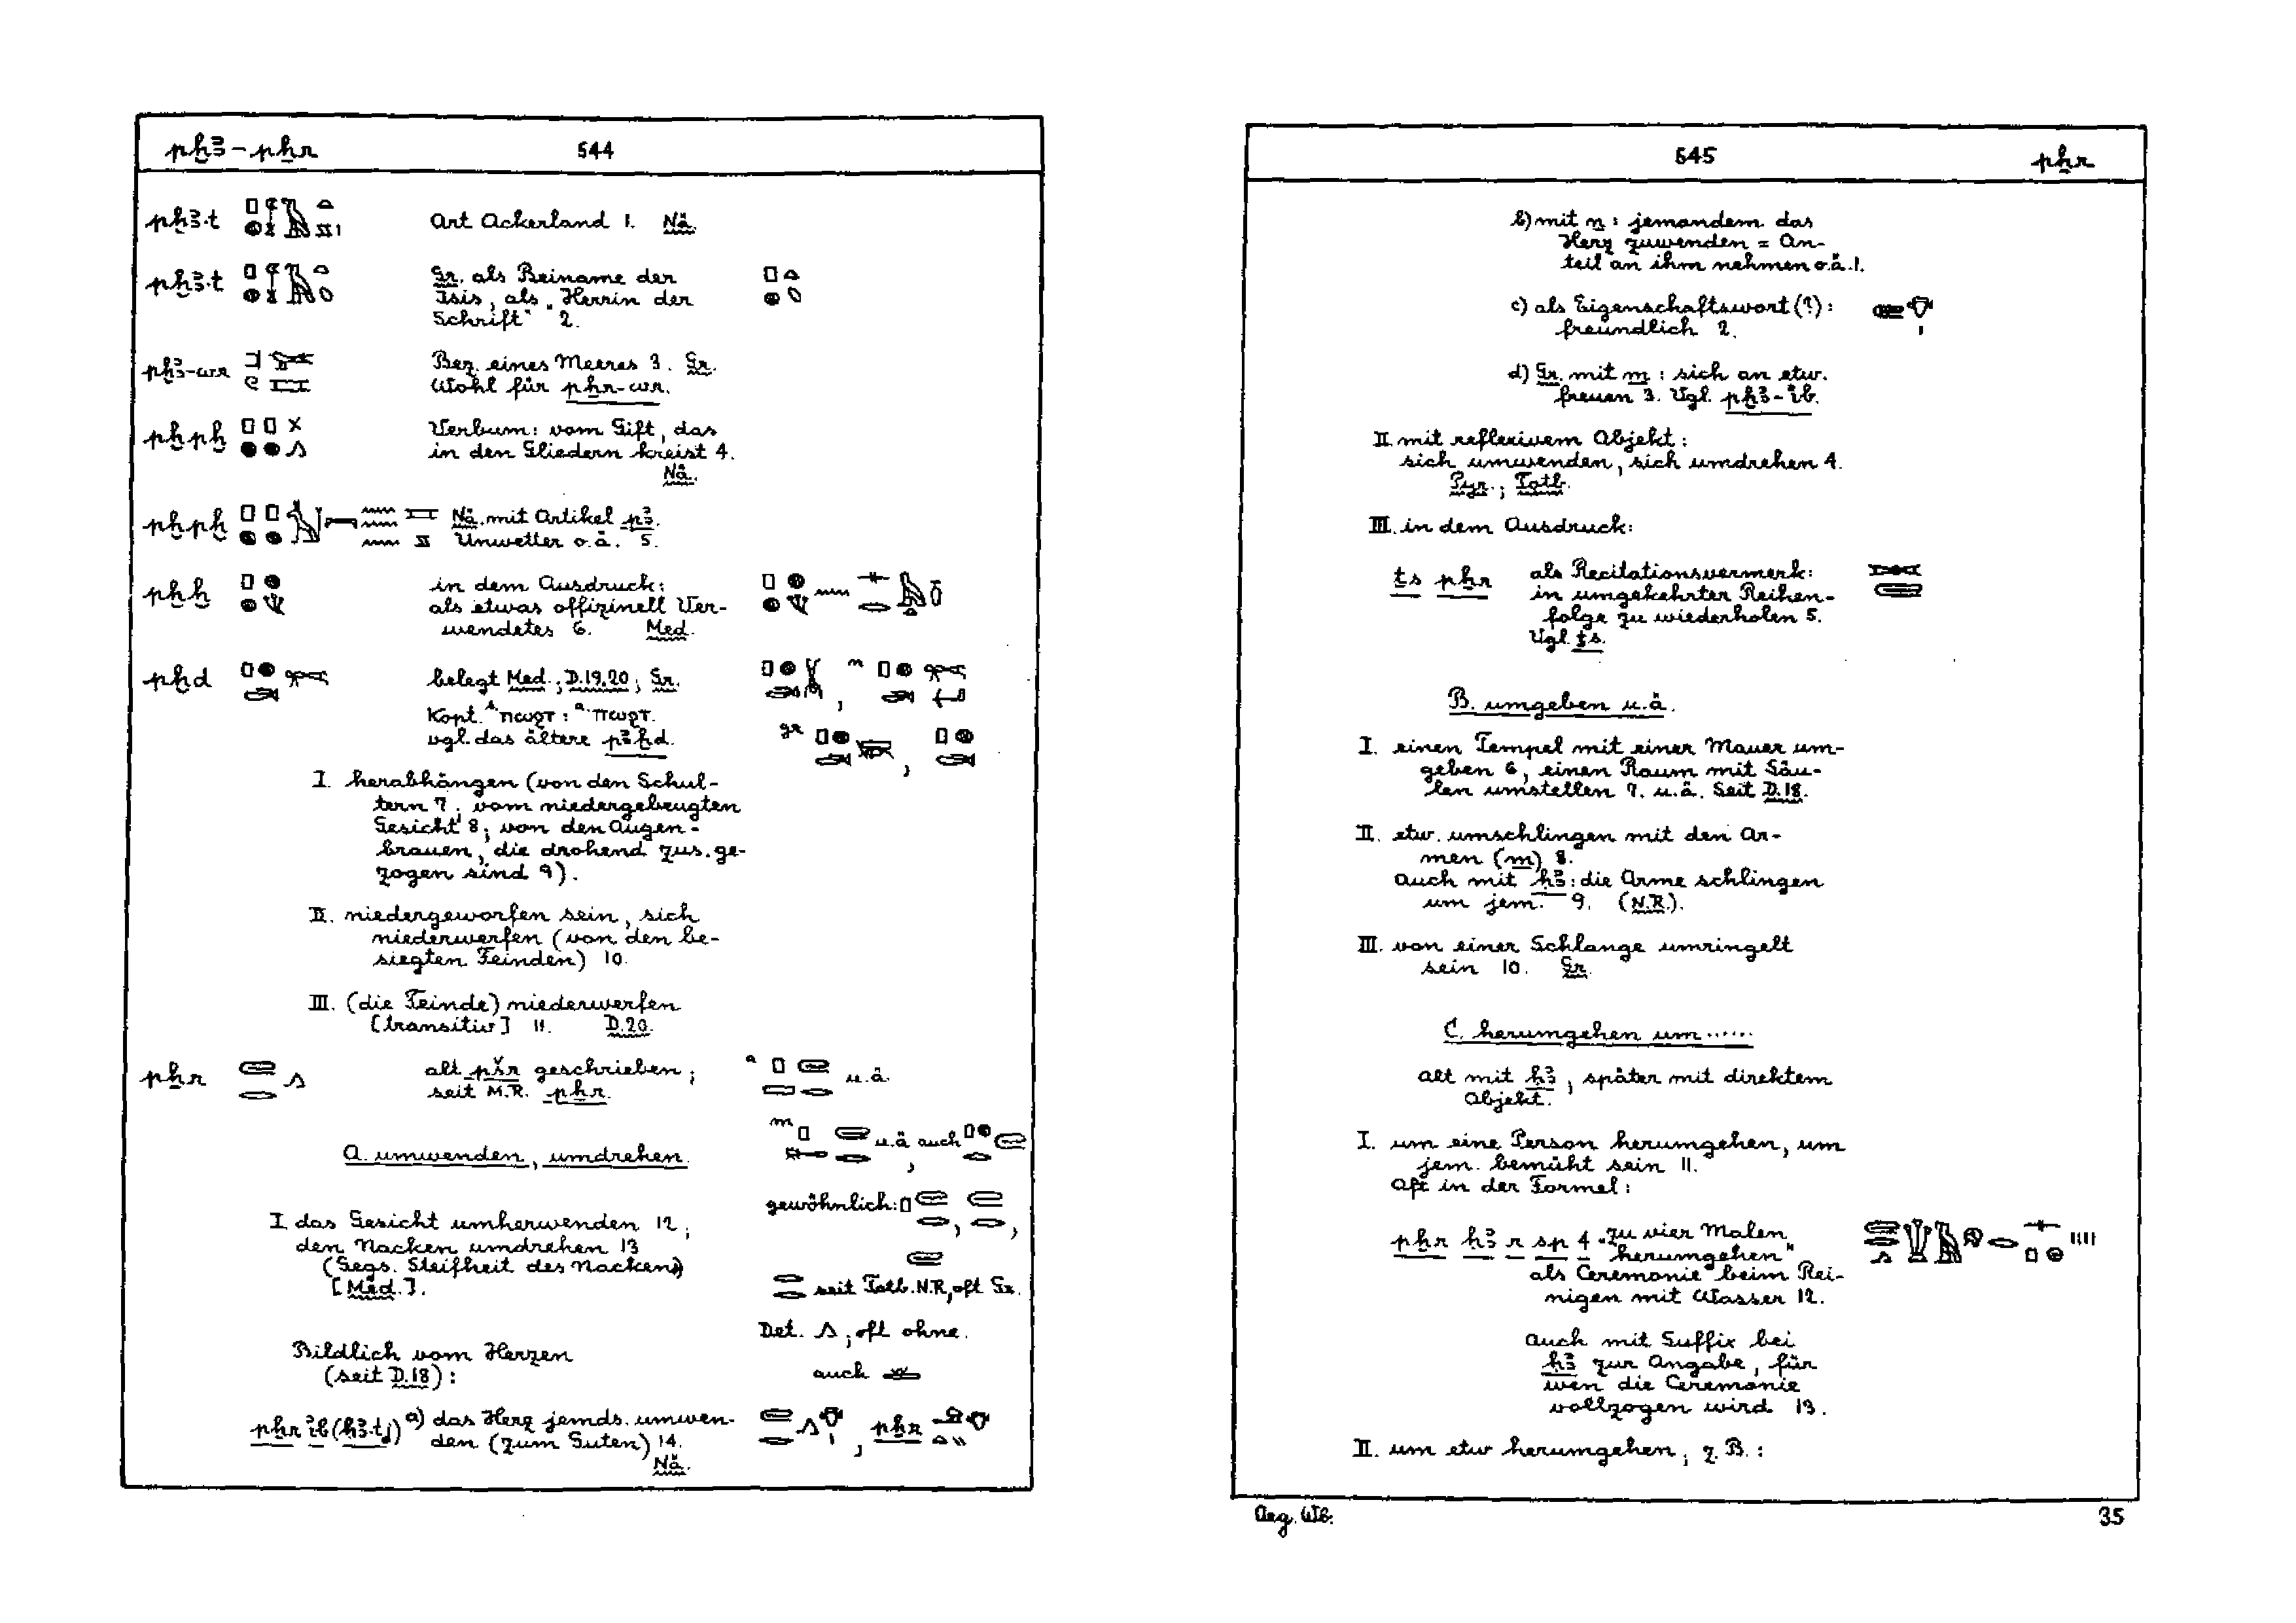 pẖꜣ – pẖr 544
pḫꜣ·t Art Ackerland 1. Nä.
pḫꜣ·t Gr. als Beiname der
Isis, als „Herrin der
Schrift“ 2.
pḫꜣ-wr Bez. eines Meeres 3. Gr.
Wohl für pẖr-wr.
pḫpḫ Verbum: vom Gift, das
in den Gliedern kreist 4.
Nä.
pḫpḫ Nä. mit Artikel pꜣ.
Unwetter o.ä. 5.
pḫḫ in dem Ausdruck:
als etwas offizinell Ver-
wendetes 6. Med.
pḫd belegt Med.; D.19.20; Gr.
Kopt.
vgl. das ältere pꜣḫd.
I. herabhängen (von den Schul-
tern 7; vom niedergebeugten
Gesicht 8; von den Augen-
brauen, die drohend zus. ge-
zogen sind 9).
II. niedergeworfen sein, sich
niederwerfen (von den be-
siegten Feinden) 10.
III. (die Feinde) niederwerfen
[transitiv] 11. D.20.
pẖr alt pšr geschrieben; a u.ä.
seit M.R. pẖr.
m u.ä. auch ,
A. umwenden, umdrehen.
gewöhnlich: , ,
I. das Gesicht umherwenden 12;
den Nacken umdrehen 13
(Gegs. Steifheit des Nackens)
[Med.].
seit Totb. N.R., oft Gr.
Det. , oft ohne.
Bildlich vom Herzen
(seit D.18):
auch
pẖr ib (ḥꜣ·tj) a) das Herz jemds. umwen- , pẖr
den (zum Guten) 14.
Nä.
545 pẖr
b) mit n: jemandem das
Herz zuwenden = An-
teil an ihm nehmen o.ä. 1.
c) als Eigenschaftswort (?):
freundlich 2.
d) Gr. mit m: sich an etw.
freuen 3. Vgl. pẖꜣ-ib.
II. mit reflexivem Objekt:
sich umwenden, sich umdrehen 4.
Pyr.; Totb.
III. in dem Ausdruck:
ṯs pẖr als Recitationsvermerk:
in umgekehrter Reihen-
folge zu wiederholen 5.
Vgl. ṯs.
B. umgeben u.ä.
I. einen Tempel mit einer Mauer um-
geben 6, einen Raum mit Säu-
len umstellen 7. u.ä. Seit D.18.
II. etw. umschlingen mit den Ar-
men (m) 8.
auch mit ḥꜣ: die Arme schlingen
um jem. 9. (N.R.).
III. von einer Schlange umringelt
sein 10. Gr.
C. herumgehen um ......
alt mit ḥꜣ, später mit direktem
Objekt.
I. um eine Person herumgehen, um
jem. bemüht sein 11.
Oft in der Formel:
pẖr ḥꜣ r sp 4 „zu vier Malen
herumgehen“
als Ceremonie beim Rei-
nigen mit Wasser 12.
auch mit Suffix bei
ḥꜣ zur Angabe, für
wen die Ceremonie
vollzogen wird 13.
II. um etw herumgehen; z.B.:
Aeg. Wb. 35